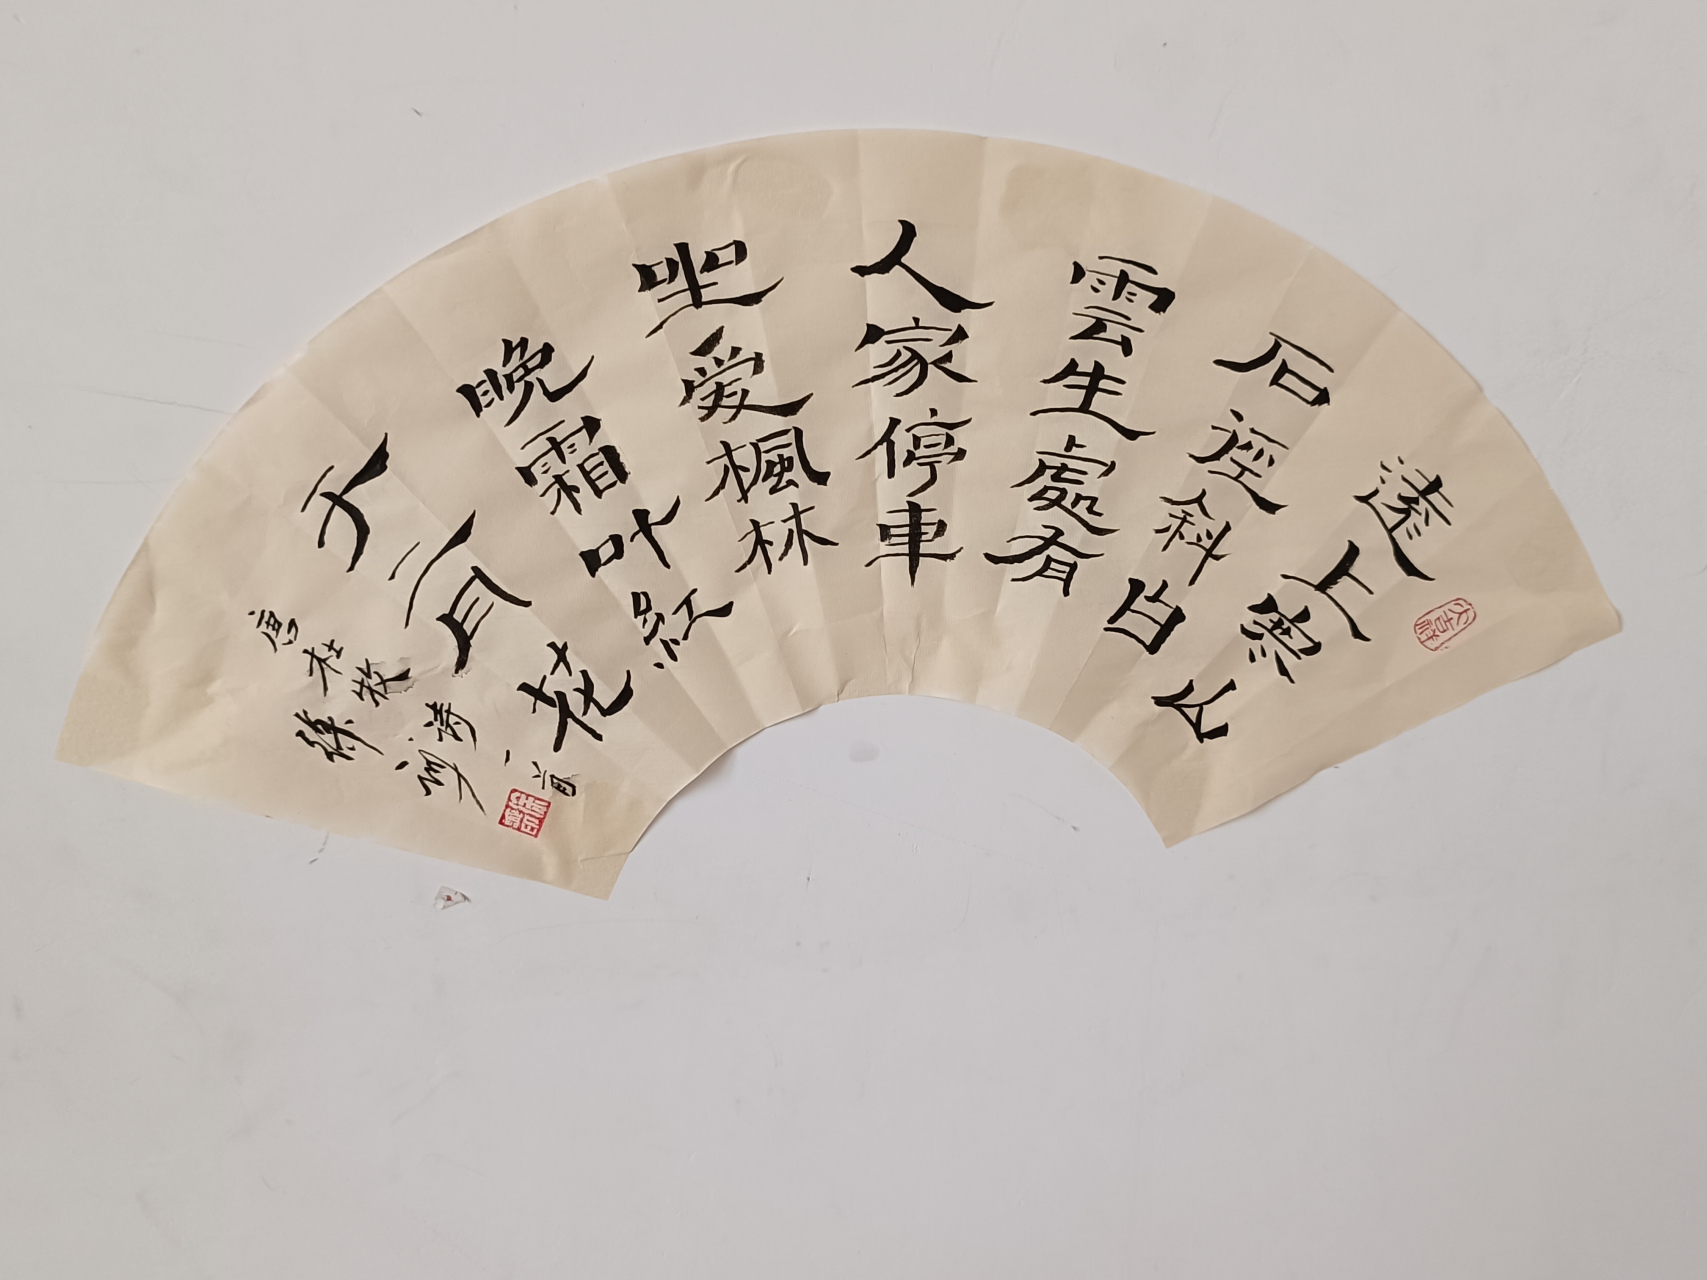 遠上寒山
石径斜白
雲生處有
人家停車
坐爱楓林
晚霜叶紅
于二月花
唐杜牧诗一首
徐
大吉祥